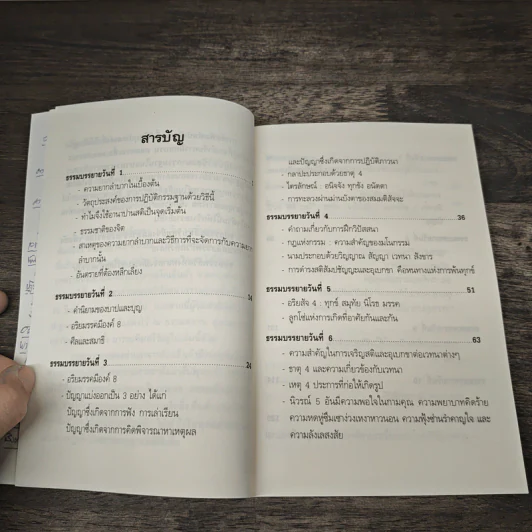 สารบัญ
ธรรมบรรยายวันที่ 1
- ความยากลำบากในเบื้องต้น
- วัตถุประสงค์ของการปฏิบัติกรรมฐานด้วยวิธีนี้
- ทำไมจึงใช้อานาปานสติเป็นจุดเริ่มต้น
- ธรรมชาติของจิต
- สาเหตุของความยากลำบากและวิธีการที่จะจัดการกับความยาก
ลำบากนั้น
- อันตรายที่ต้องหลีกเลี่ยง
ธรรมบรรยายวันที่ 2
- คำนิยามของบาปและบุญ
- อริยมรรคมีองค์ 8
- ศีลและสมาธิ
ธรรมบรรยายวันที่ 3 24
- อริยมรรคมีองค์ 8
- ปัญญาแบ่งออกเป็น 3 อย่าง ได้แก่
ปัญญาซึ่งเกิดจากการฟัง การเล่าเรียน
ปัญญาซึ่งเกิดจากการคิดพิจารณาหาเหตุผล
และปัญญาซึ่งเกิดจากการปฏิบัติภาวนา
- กลาปะประกอบด้วยธาตุ 4
- ไตรลักษณ์ : อนิจจัง ทุกขัง อนัตตา
- การทะลวงผ่านม่านบังตาของสมมติสัจจะ
ธรรมบรรยายวันที่ 4 36
- คำถามเกี่ยวกับการฝึกวิปัสสนา
- กฎแห่งกรรม : ความสำคัญของมโนกรรม
- นามประกอบด้วยวิญญาณ สัญญา เวทนา สังขาร
- การดำรงสติสัมปชัญญะและอุเบกขา คือหนทางแห่งการพ้นทุกข์
ธรรมบรรยายวันที่ 5 51
- อริยสัจ 4 : ทุกข์ สมุทัย นิโรธ มรรค
- ลูกโซ่แห่งการเกิดที่อาศัยกันและกัน
ธรรมบรรยายวันที่ 6 63
- ความสำคัญในการเจริญสติและอุเบกขาต่อเวทนาต่างๆ
- ธาตุ 4 และความเกี่ยวข้องกับเวทนา
- เหตุ 4 ประการที่ก่อให้เกิดรูป
- นิวรณ์ 5 อันมีความพอใจในกามคุณ ความพยาบาทคิดร้าย
ความหดหู่ซึมเซาง่วงเหงาหาวนอน ความฟุ้งซ่านรำคาญใจ และ
ความลังเลสงสัย